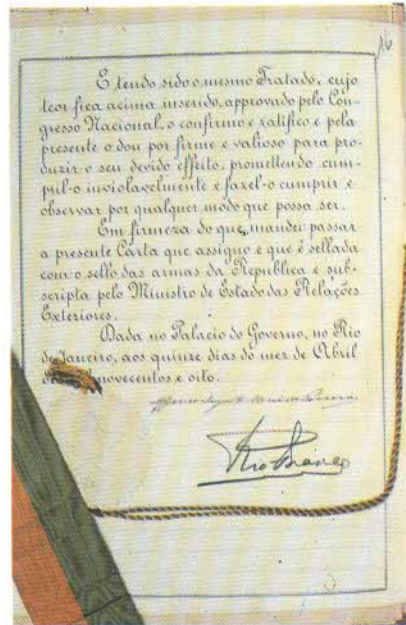 16
E tendo sido o mesmo Tratado, cujo
teor fica acima inserido, approvado pelo Con-
gresso Nacional, o confirmo e ratifico e pela
presente o dou por firme e valioso para pro-
duzir o seu devido effeito, promettendo cum-
pril-o inviolavelmente e fazel-o cumprir e
observar por qualquer modo que possa ser.
Em firmeza do que, mandei passar
a presente Carta que assigno e que é sellada
com o sello das armas da Republica e sub-
scripta pelo Ministro de Estado das Relações
Exteriores.
Dada no Palacio do Governo, no Rio
de Janeiro, aos quinze dias do mez de Abril
novecentos e oito.
Rio Branco